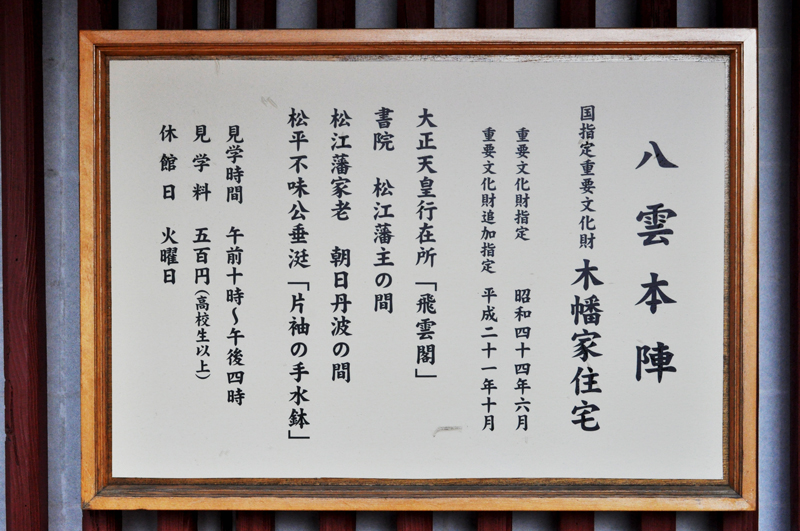 八雲本陣
国指定重要文化財 木幡家住宅
重要文化財指定 昭和四十四年六月
重要文化財追加指定 平成二十一年十月
大正天皇行在所「飛雲閣」
書院 松江藩主の間
松江藩家老 朝日丹波の間
松平不味公垂涎「片袖の手水鉢」
見学時間 午前十時〜午後四時
見学料 五百円(高校生以上)
休館日 火曜日